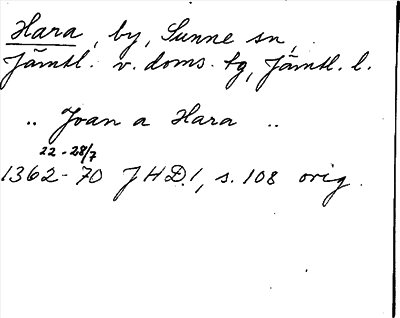 Hara, by, Sunne sn,
Jämtl. v. doms. tg, Jämtl. l.
.. Joan a Hara ..
22-28/7
1362-70 JHD1, s. 108 orig.